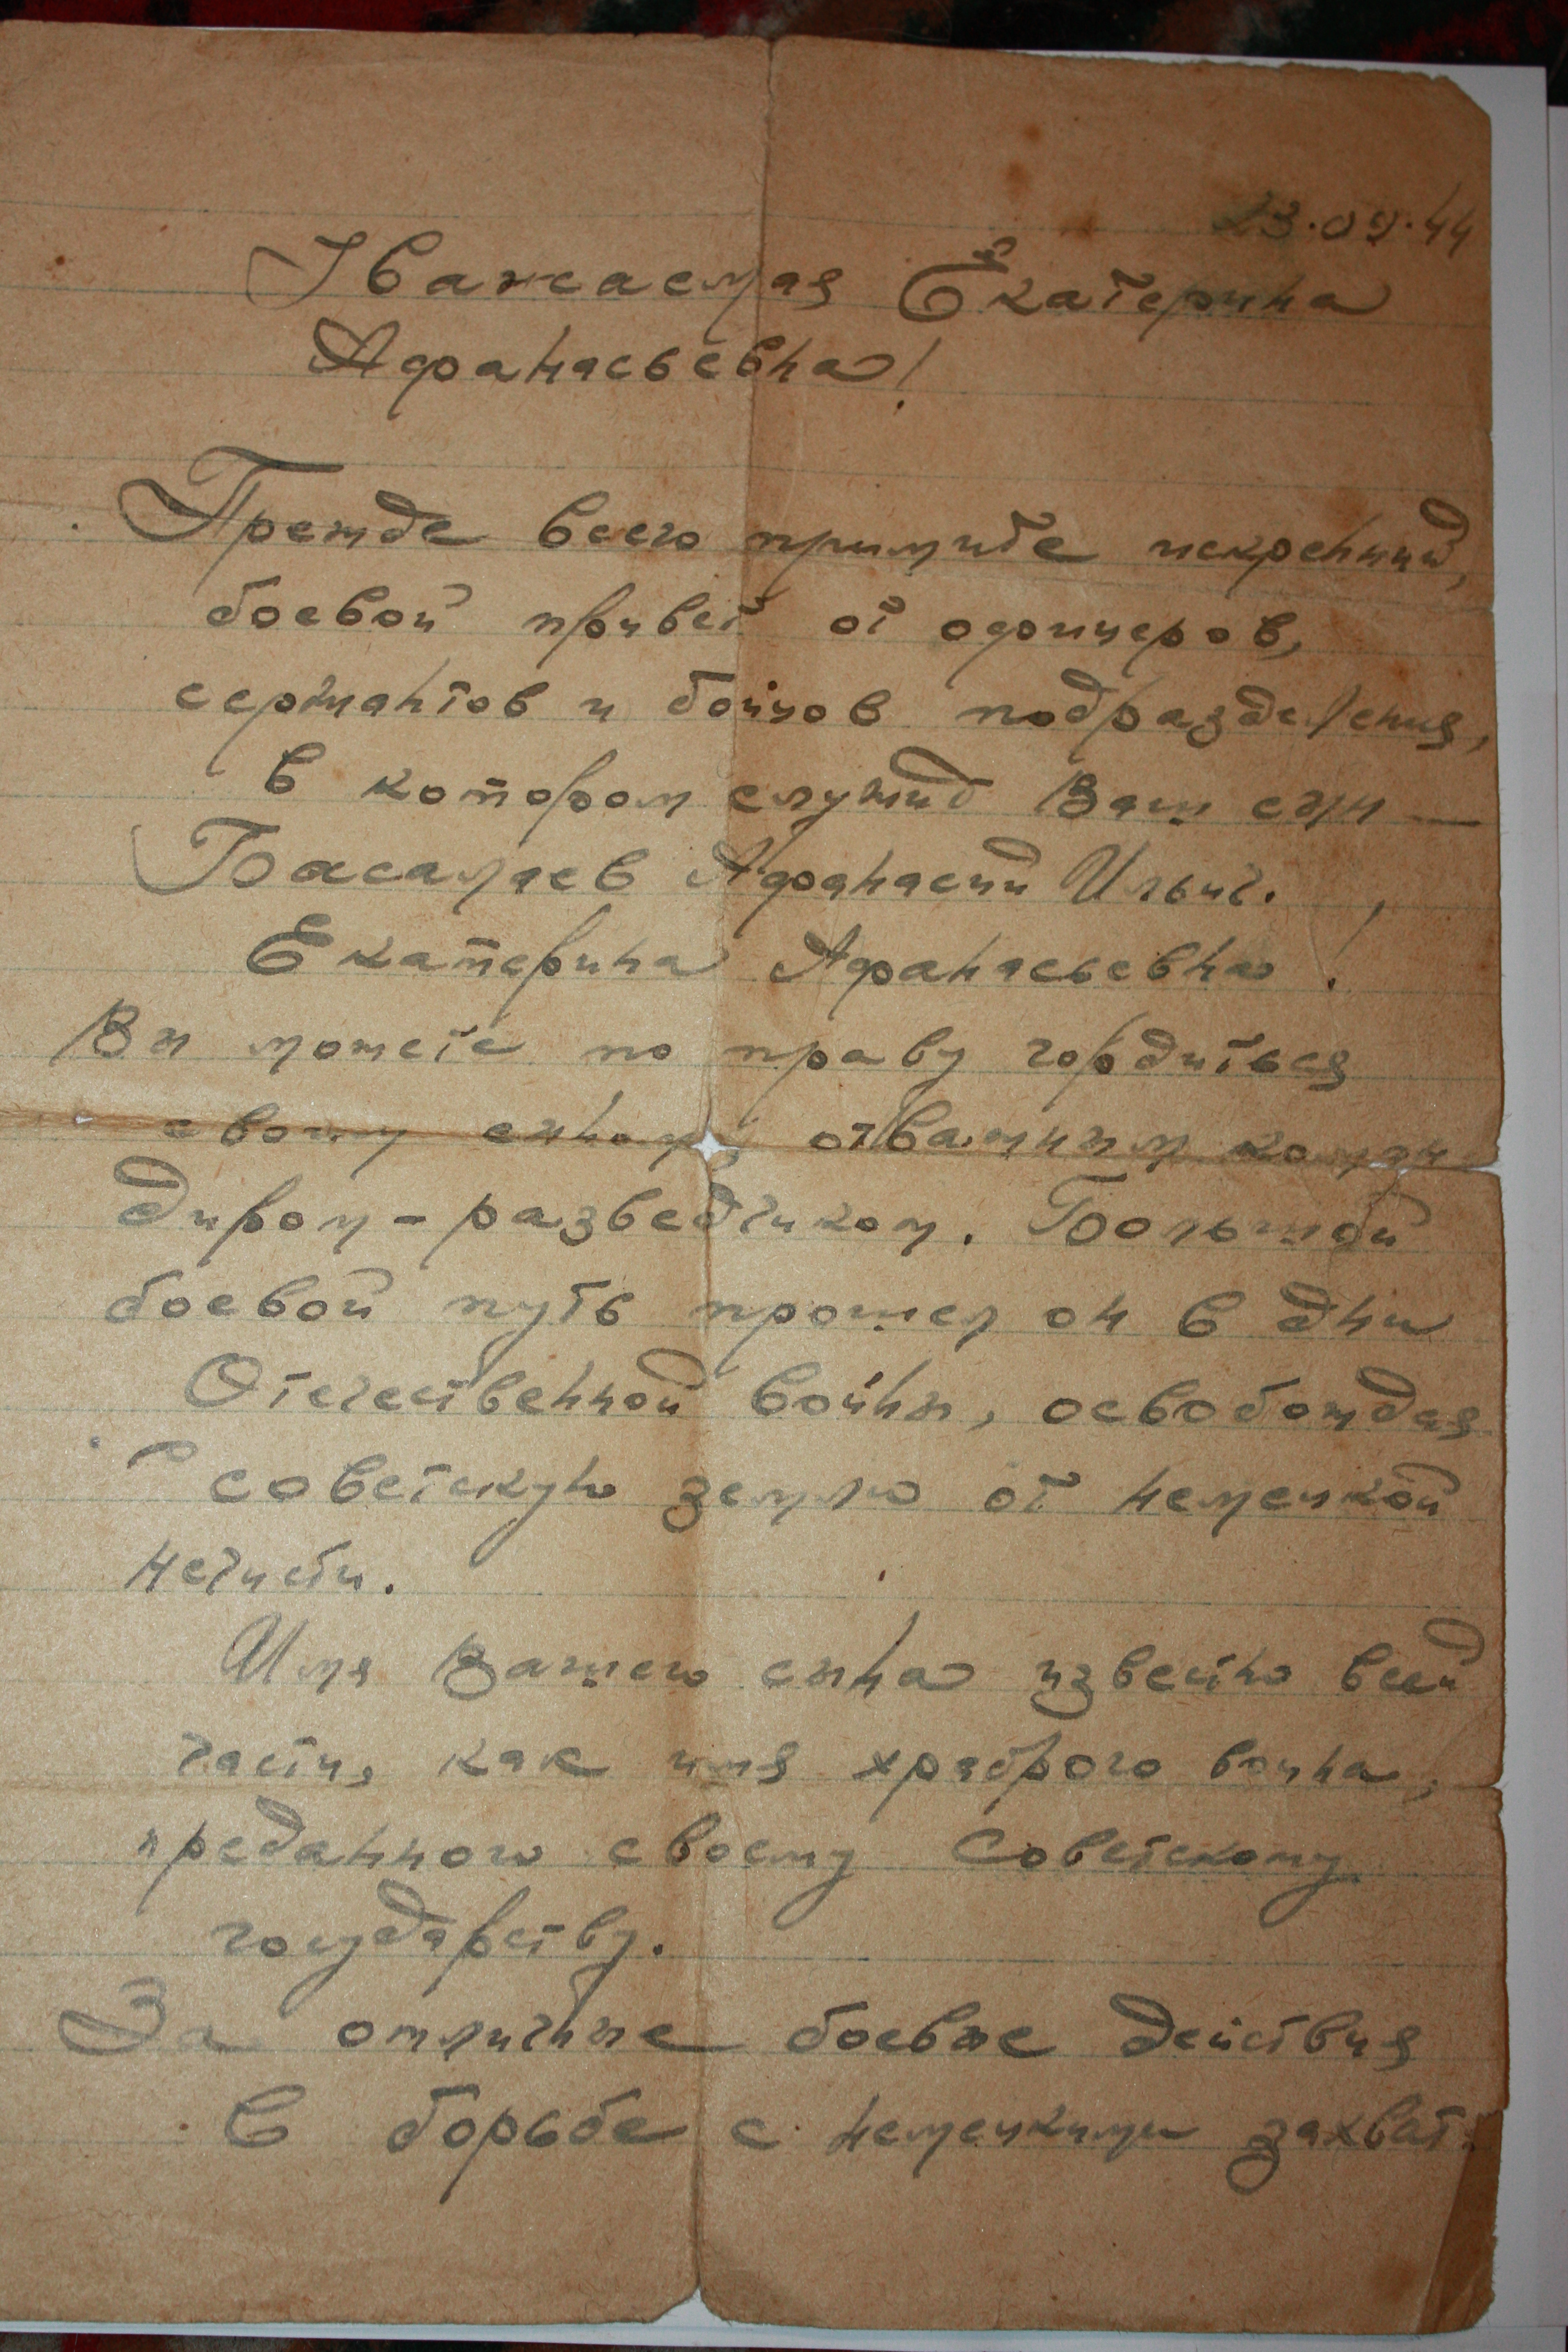 23.09.44
Уважаемая Екатерина
Афанасьевна!
Прежде всего примите искренний,
боевой привет от офицеров,
сержантов и бойцов подразделения,
в котором служит Ваш сын —
Басамаев Афанасий Ильич.
Екатерина Афанасьевна!
Вы можете по праву гордиться
своим сыном, отважным коман
диром - разведчиком. Большой
боевой путь прошел он в дни
Отечественной войны, освобождая
советскую землю от немецкой
нечисти.
Имя Вашего сына известно всей
части, как имя храброго воина,
преданного своему Советскому
государству.
За отличные боевые действия
в борьбе с немецкими захват.